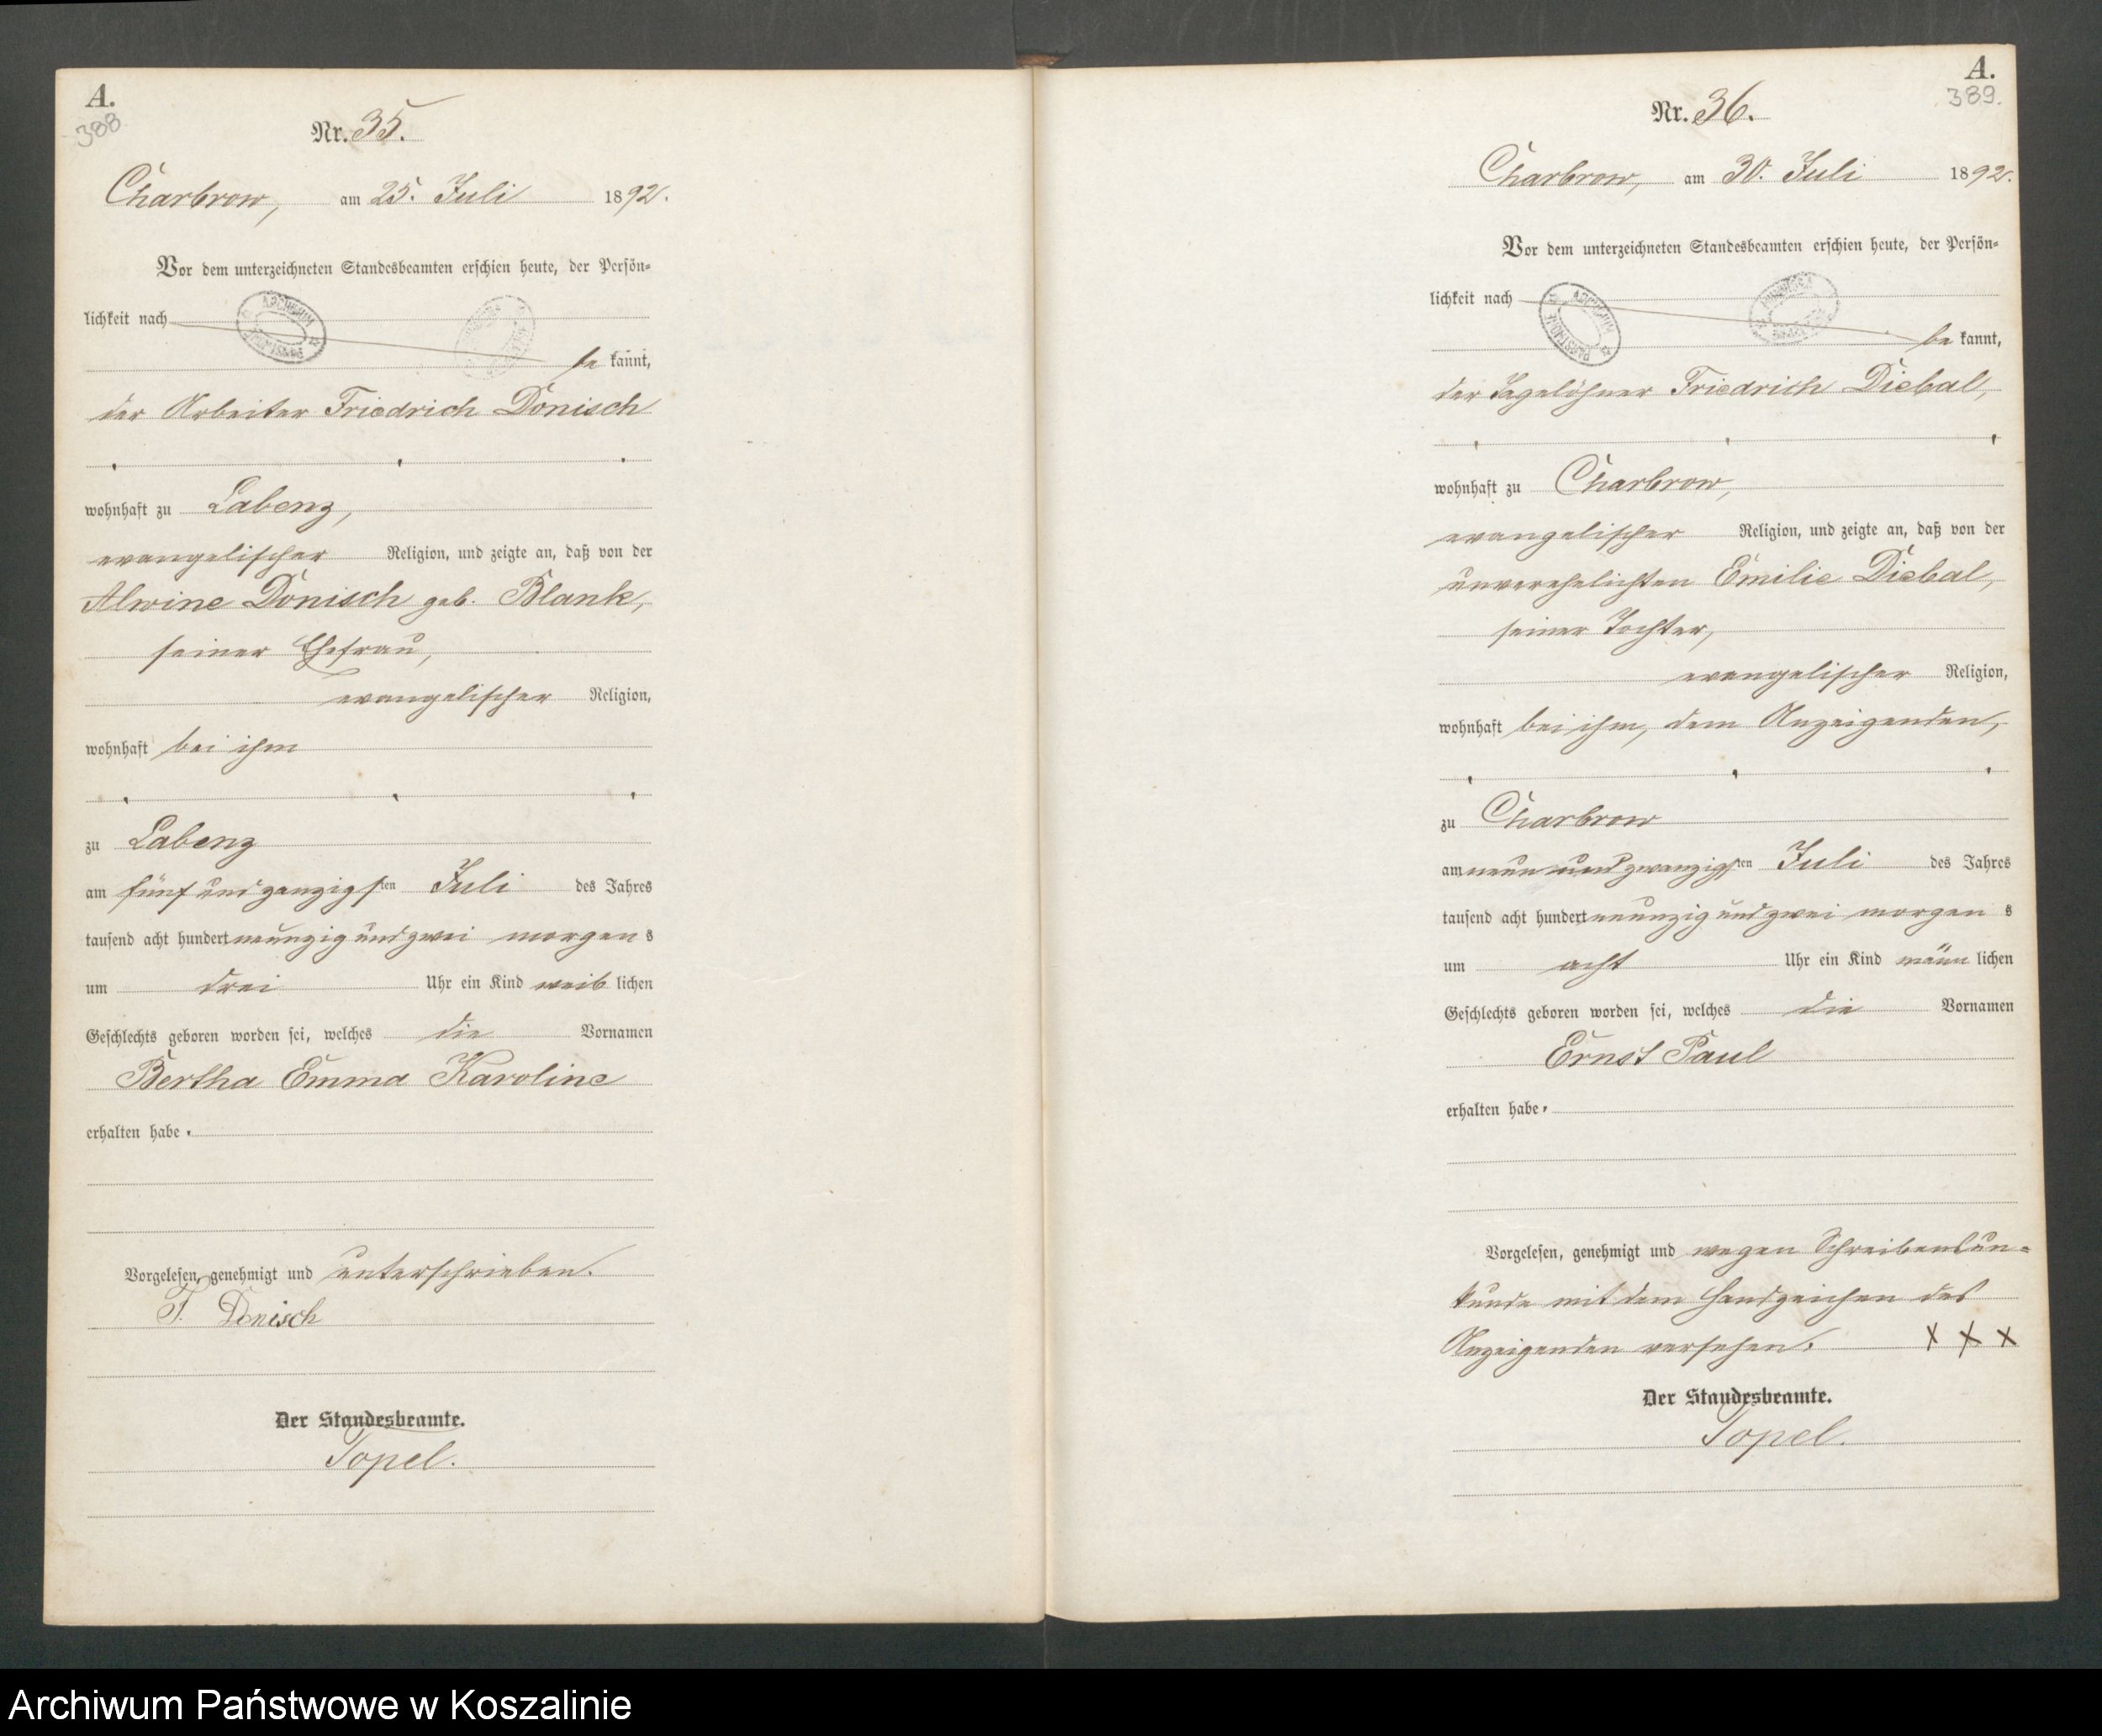 A.
388
Nr. 35.
Charbrow, am 25. Juli 1892.
Vor dem unterzeichneten Standesbeamten erschien heute, der Persön=
lichkeit nach
be kannt,
der Arbeiter Friedrich Donisch
wohnhaft zu Labenz,
evangelischer Religion, und zeigte an, daß von der
Alwine Donisch geb. Blank,
seiner Ehefrau,
evangelischer Religion,
wohnhaft bei ihm
zu Labenz
am fünf und zanzigsten Juli des Jahres
tausend acht hundert neunzig und zwei morgens
um drei Uhr ein Kind weiblichen
Geschlechts geboren worden sei, welches die Vornamen
Bertha Emma Karoline
erhalten habe.
Vorgelesen, genehmigt und unterschrieben.
F. Donisch
Der Standesbeamte.
Topel.
A.
389.
Nr. 36.
Charbrow, am 30. Juli 1892.
Vor dem unterzeichneten Standesbeamten erschien heute, der Persön=
lichkeit nach
be kannt,
der Tagelöhner Friedrich Diebal,
wohnhaft zu Charbrow,
evangelischer Religion, und zeigte an, daß von der
unverehelichten Emilie Diebal,
seiner Tochter,
evangelischer Religion,
wohnhaft bei ihm, dem Anzeigenden,
zu Charbrow
am neun und zwanzigsten Juli des Jahres
tausend acht hundert neunzig und zwei morgens
um acht Uhr ein Kind männlichen
Geschlechts geboren worden sei, welches die Vornamen
Ernst Paul
erhalten habe.
Vorgelesen, genehmigt und wegen Schreibensun=
kunde mit dem Handzeichen des
Anzeigenden versehen. X X X
Der Standesbeamte.
Topel.
Archiwum Państwowe w Koszalinie